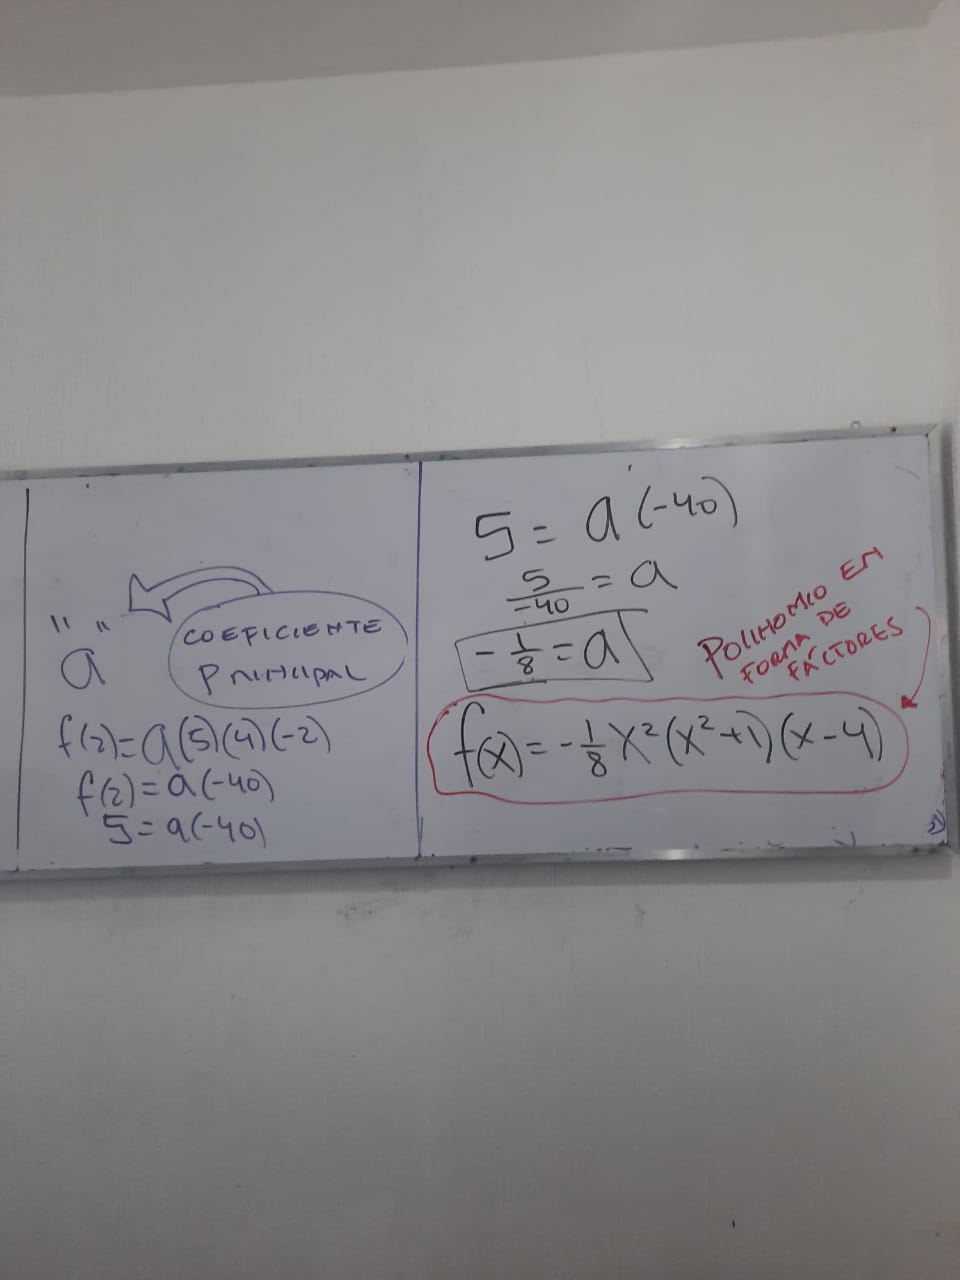 " "
a
COEFICIENTE
PRINCIPAL
f(2)=a(5)(4)(-2)
f(2)=a(-40)
5=a(-40)
5=a(-40)
5/-40=a
-1/8=a
POLINOMIO EN
FORMA DE
FÁCTORES
f(x)=-1/8x²(x²+1)(x-4)